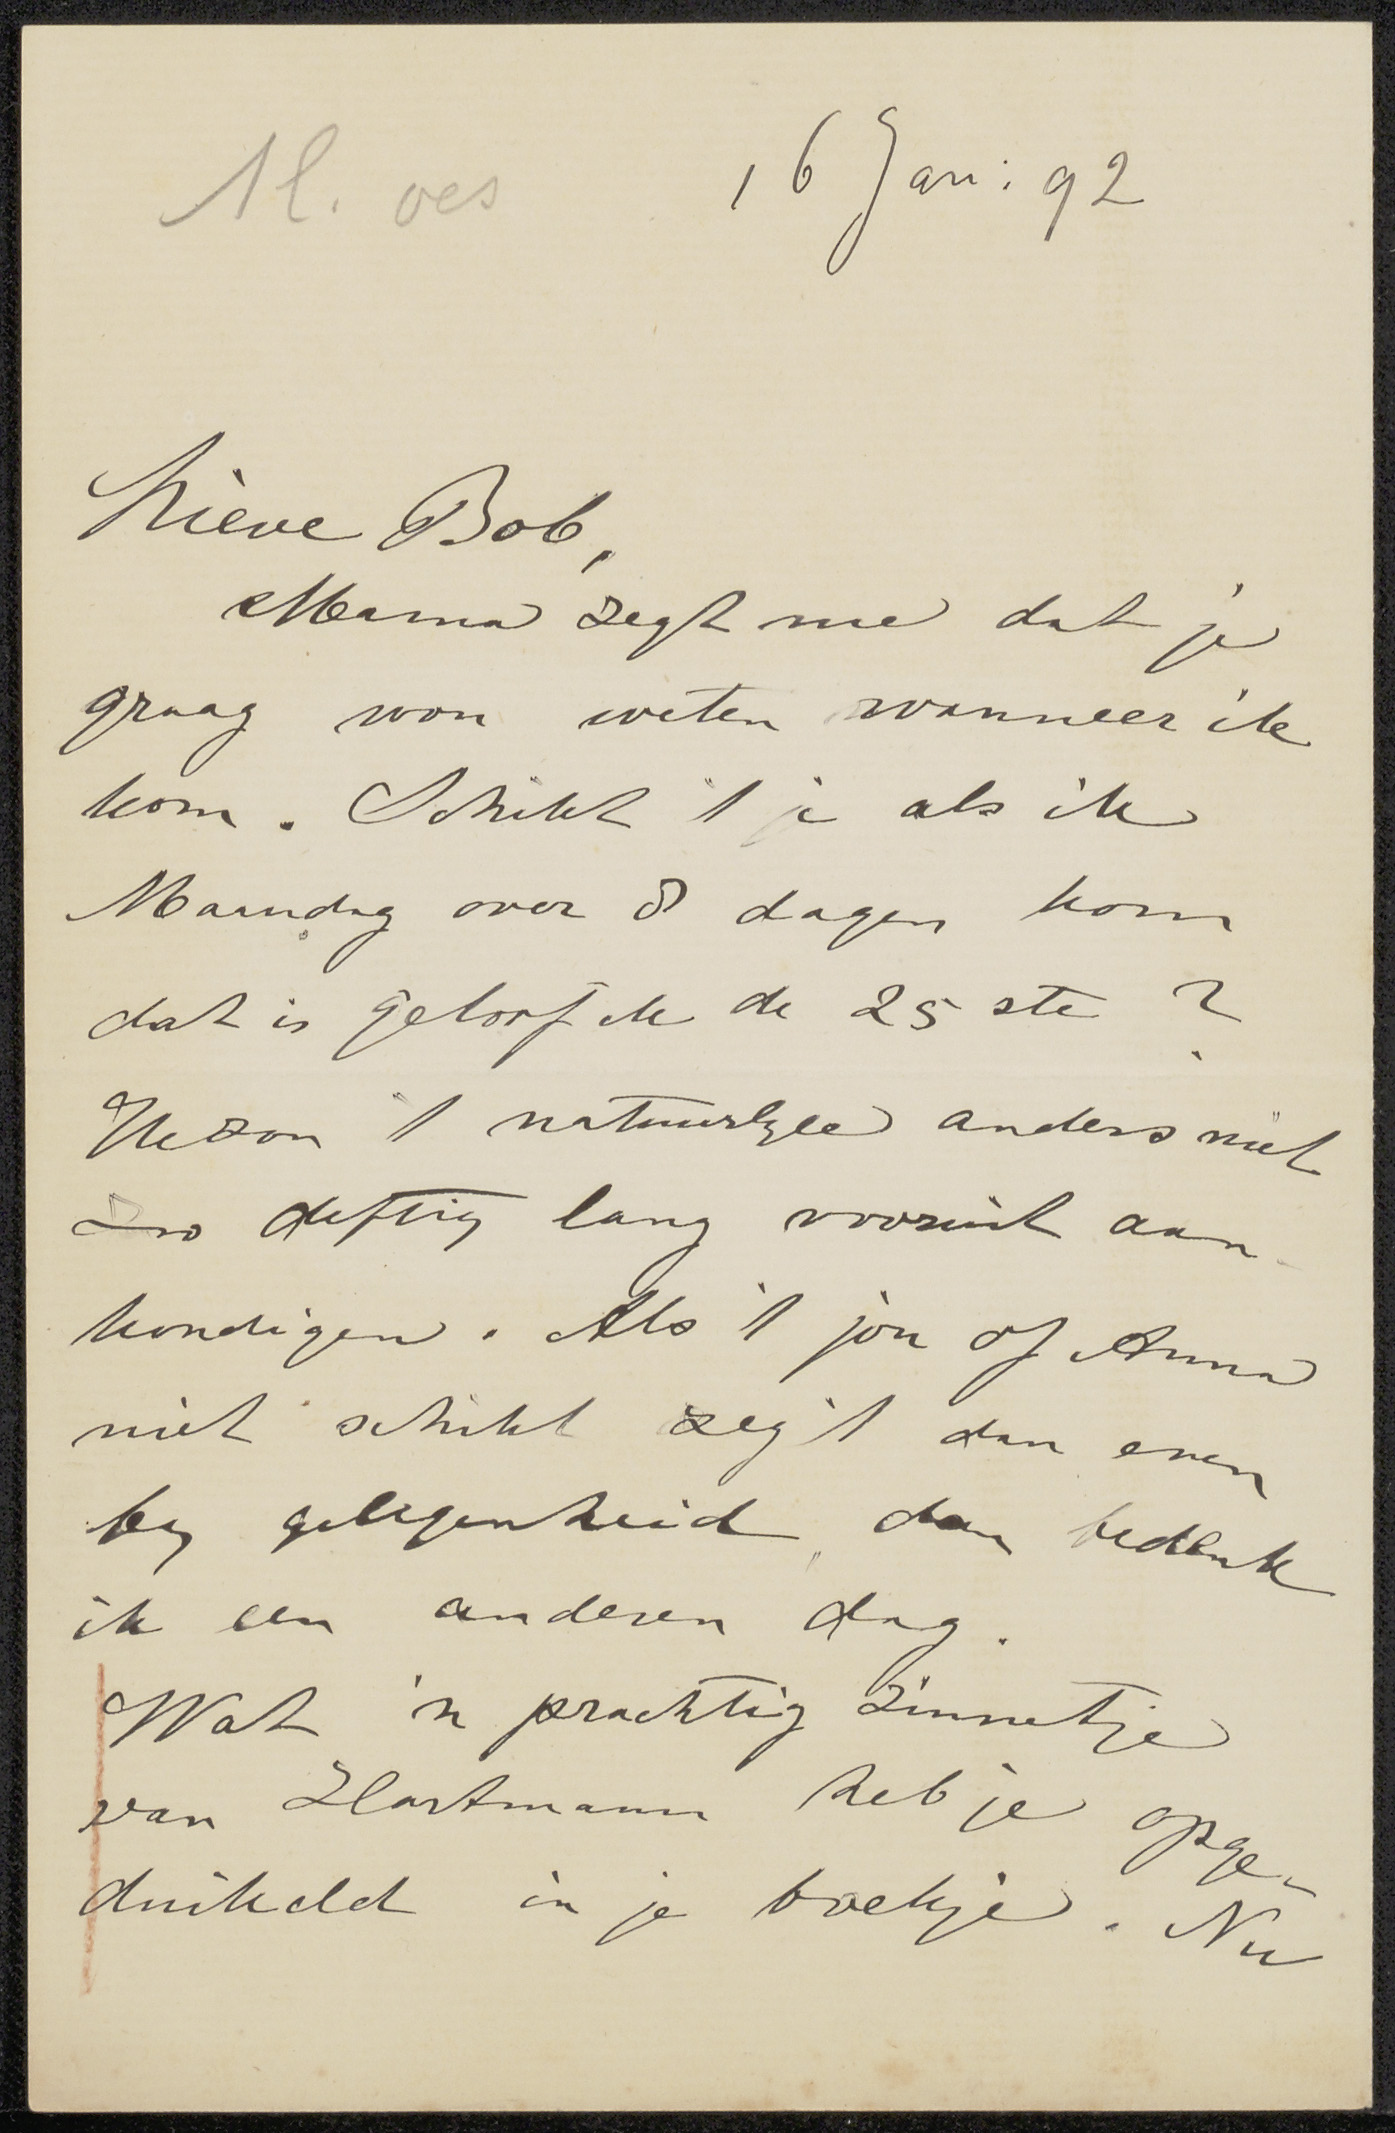 16 Jan: 92
Lieve Bob,
Mama zegt me dat je
graag wou weten wanneer ik
kom. Schikt 't je als ik
Maandag over 8 dagen kom
dat is geloof ik de 25 ste?
Ik zou 't natuurlyk anders niet
zoo deftig lang vooruit aan-
kondigen. Als 't jou of Anna
niet schikt zeg 't dan even
by gelegenheid, dan bedenk
ik een anderen dag.
Wat 'n prachtig zinnetje
van Hartmann heb je opge-
duikeld in je boekje. Nu